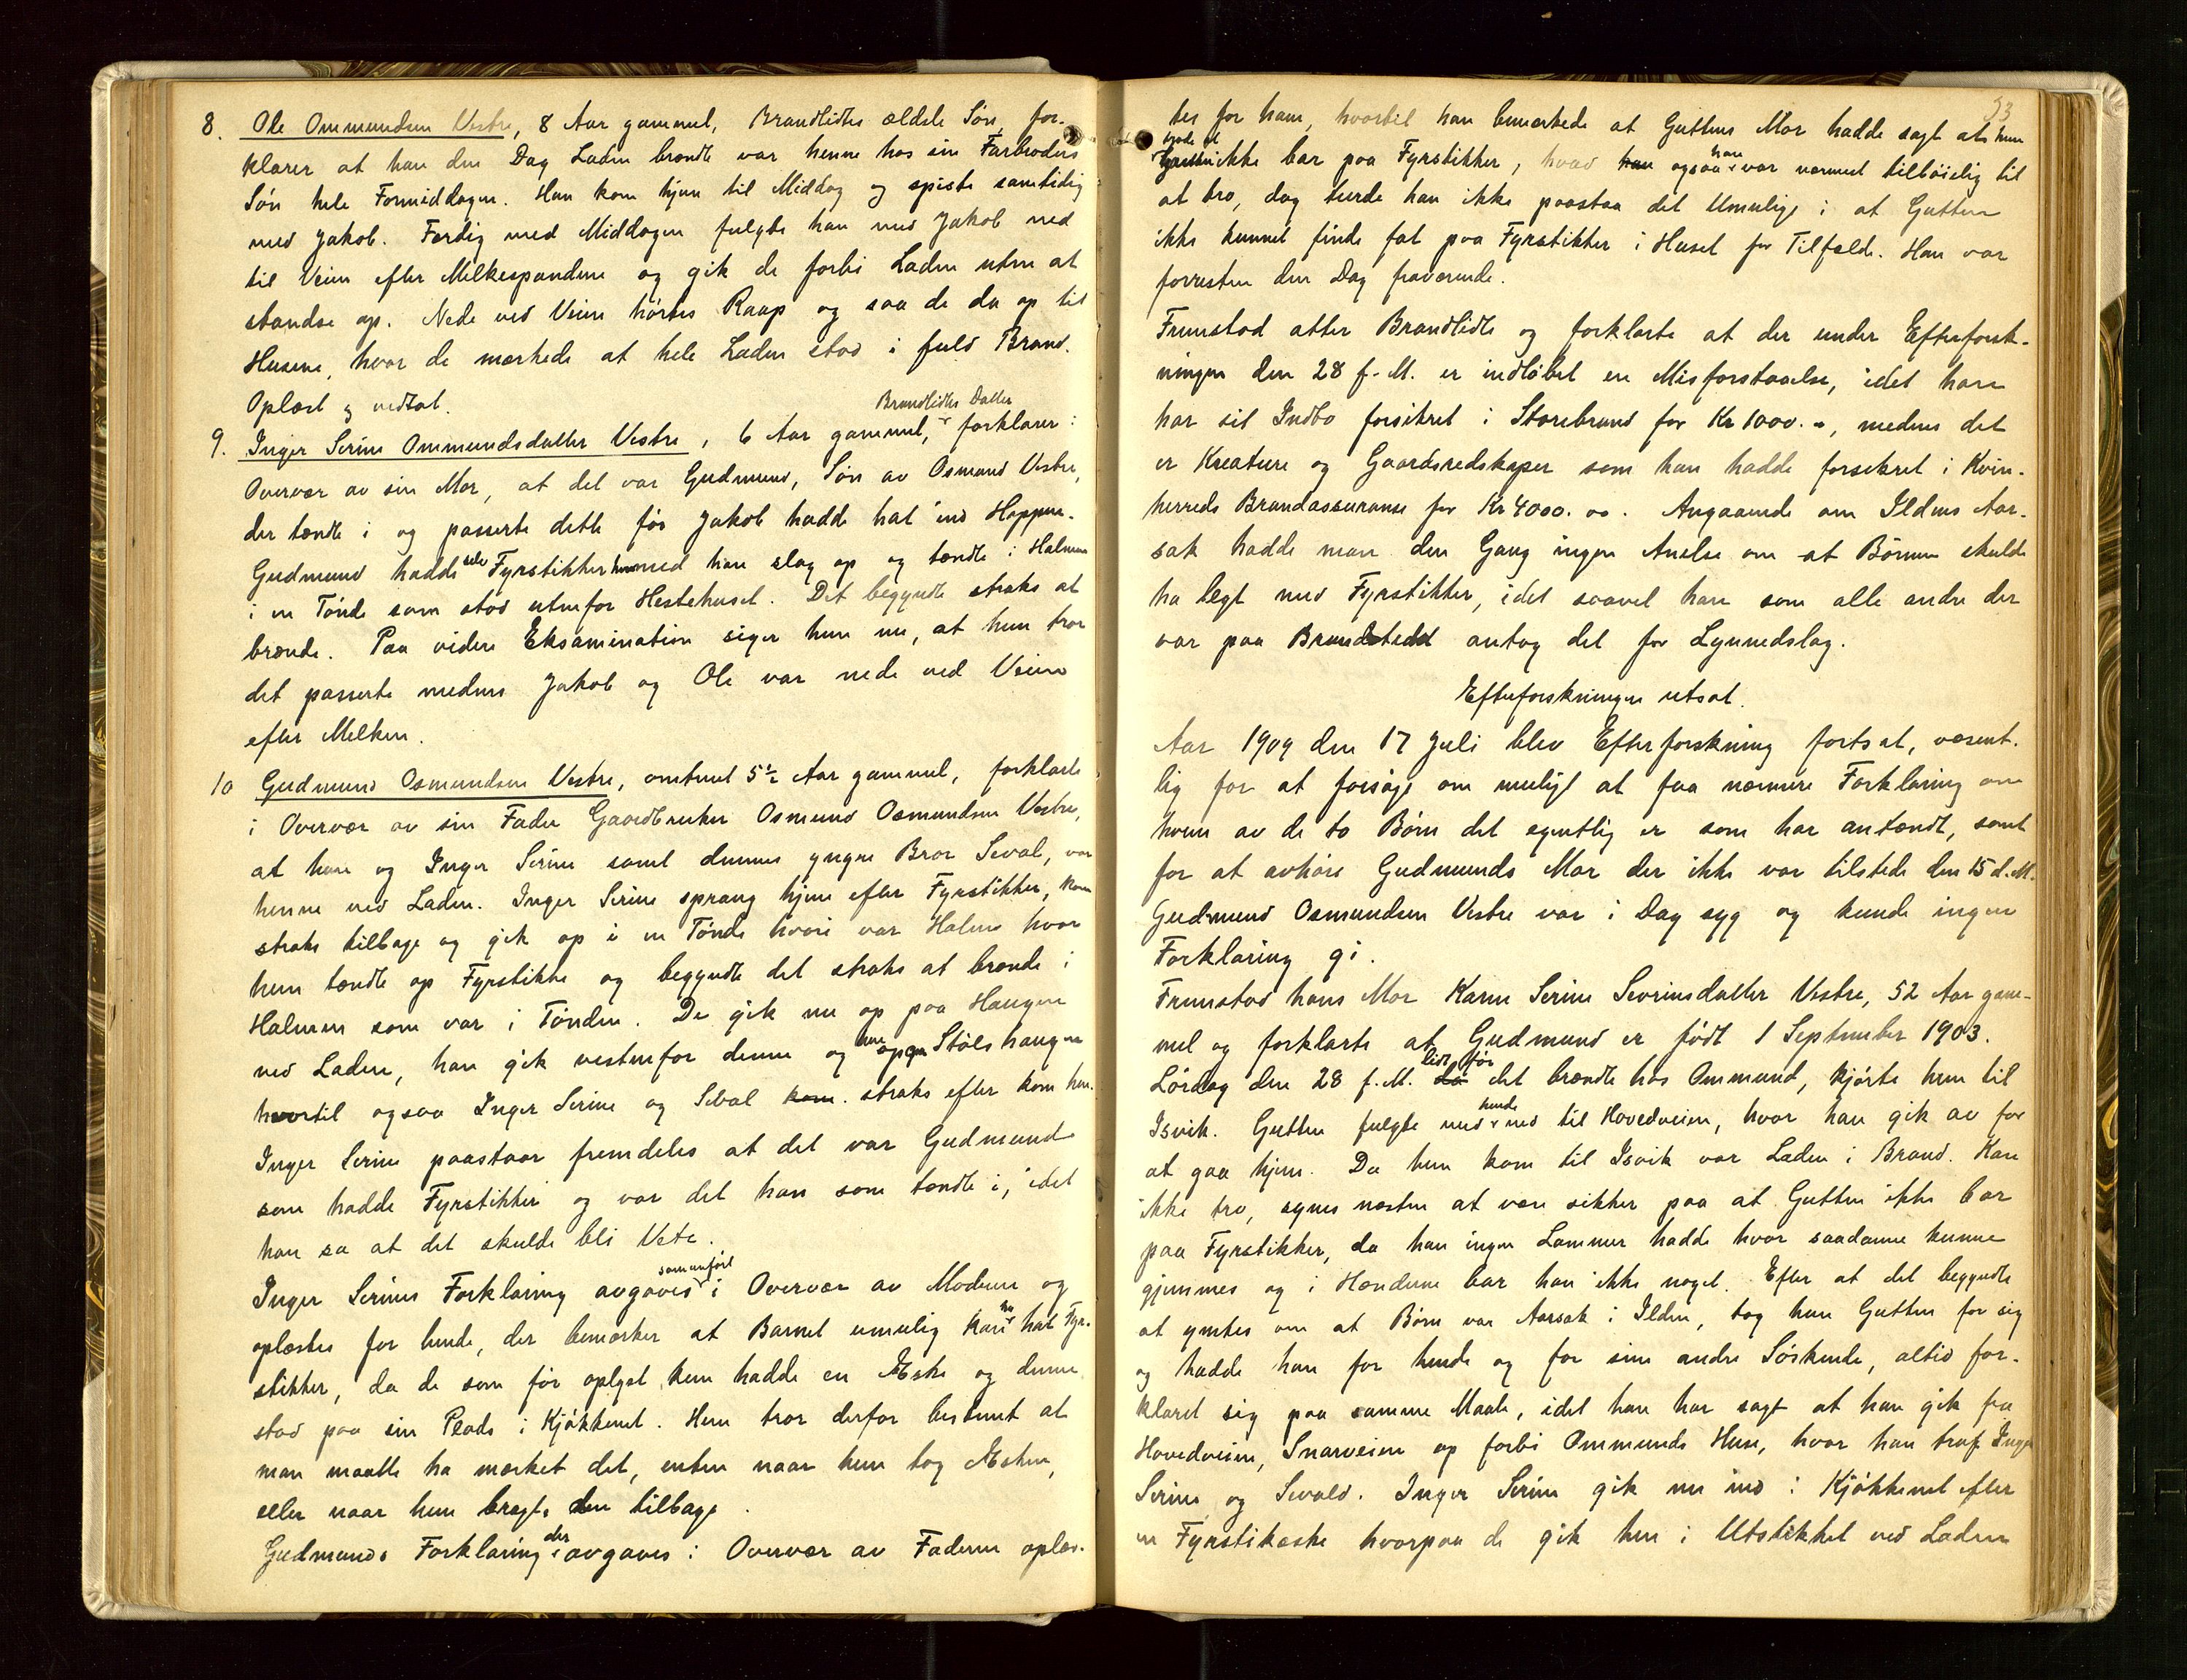 8. Ole Ommundsen Vestre, 8 Aar gammel, Brandlidtes ældste Søn, for-
klarer at han den Dag Laden brændte var henne hos sin Farbroders
Søn hele Formiddagen. Han kom hjem til Middag og spiste samtidig
med Jakob. Færdig med Middagen fulgte han med Jakob ned
til Veien efter Melkespandene og gik de forbi Laden uten at
standse op. Nede ved Veien hørtes Raap og saa de da op til
Husene, hvor de mærkede at hele Laden stod i fuld Brand.
Oplæst og vedtat.
Brandlidtes Datter
9. Inger Serine Ommundsdatter Vestre, 6 Aar gammel, forklarer i
Overvær av sin Mor, at det var Gudmund, Søn av Osmund Vestre,
der tændte i og passerte dette før Jakob hadde hat ind Hoppen.
Gudmund hadde selv Fyrstikker hvormed han slog op og tændte i Halmen
i en Tønde som stod utenfor Hestehuset. Det begyndte straks at
brænde. Paa videre Eksamination siger hun nu, at hun tror
det passerte medens Jakob og Ole var nede ved Veien
efter Melken.
10 Gudmund Osmundsen Vestre, omtrent 5½ Aar gammel, forklarte
i Overvær av sin Fader Gaardbruker Osmund Osmundsen Vestre,
at han og Inger Serine samt dennes yngre Bror Seval, var
henne ved Laden. Inger Serine sprang hjem efter Fyrstikker, kom
straks tilbage og gik op i en Tønde hvori var Halm hvor
hun tændte op Fyrstikke og begyndte det straks at brænde i
Halmen som var i Tønden. De gik nu op paa Haugen
ved Laden, han gik vestenfor denne og hen op paa Støls haugen
hvortil ogsaa Inger Serine og Seval kom straks efter kom hen.
Inger Serine paastaar fremdeles at det var Gudmund
som hadde Fyrstikker og var det han som tændte i, idet
han sa at det skulde bli Vete.
Inger Serines Forklaring avgaves samenført i Overvær av Moderen og
oplæstes for hende, der bemærker at Barnet umulig kan ha hat Fyr-
stikker, da de som før oplyst kun hadde en Æske og denne
stod paa sin Plads i Kjøkkenet. Hun tror derfor bestemt at
man maatte ha mærket det, enten naar hun tog Æsken,
eller naar hun bragte den tilbage.
Gudmunds Forklaring der avgaves i Overvær av Faderen oplæs-
53
tes for ham, hvortil han bemærkede at Guttens Mor hadde sagt at hun
trode at Gutten ikke bar paa Fyrstikker, hvad han ogsaa han var nærmest tilbøielig til
at tro, dog turde han ikke paastaa det Umulige i at Gutten
ikke kunnet finde fat paa Fyrstikker i Huset for Tilfælde. Han var
forresten den Dag fraværende.
Fremstod atter Brandlidte og forklarte at der under Efterforsk-
ningen den 28 f. M. er indløbet en Misforstaaelse, idet han
har sit Indbo forsikret i Storebrand for Kr 1000.-, medens det
er Kreature og Gaardsredskaper som han hadde forsikret i Kvin-
herreds Brandassuranse for Kr 4000.00. Angaaende om Ildens Aar-
sak hadde man den Gang ingen Anelse om at Børnene skulde
ha legt med Fyrstikker, idet saavel han som alle andre der
var paa Brandstedet antog det for Lynnedslag.
Efterforskningen utsat.
Aar 1909 den 17 Juli blev Efterforskning fortsat, væsent-
lig for at forsøge om muligt at faa nærmere Forklaring om
hvem av de to Børn det egentlig er som har antændt, samt
for at avhøre Gudmunds Mor der ikke var tilstede den 15 d. M.
Gudmund Osmundsen Vestre var i Dag syg og kunde ingen
Forklaring gi.
Fremstod hans Mor Karen Serine Sevrinsdatter Vestre, 52 Aar gam-
mel og forklarte at Gudmund er født 1 September 1903.
Lørdag den 28 f. M. da lidt før det brændte hos Ommund, kjørte hun til
Isvik. Gutten fulgte med hende ned til Hovedveien, hvor han gik av for
at gaa hjem. Da hun kom til Isvik var Laden i Brand. Kan
ikke tro, synes næsten at være sikker paa at Gutten ikke bar
paa Fyrstikker, da han ingen Lommer hadde hvor saadanne kunne
gjemmes og i Hænderne bar han ikke noget. Efter at det begyndte
at ymtes om at Børn var Aarsak i Ilden, tog hun Gutten for sig
og hadde han for hende og for sine andre Søskende, altid for-
klaret sig paa samme Maate, idet han har sagt at han gik fra
Hovedveien, Snarveien op forbi Ommunds Huse, hvor han traf Inger
Serine og Sevald. Inger Serine gik nu ind i Kjøkkenet efter
en Fyrstikæske hvorpaa de gik hen i Utstikket ved Laden